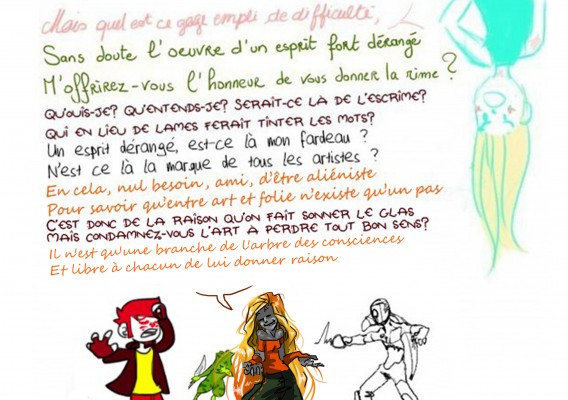 Mais quel est ce gage empli de difficulté,
Sans doute l'oeuvre d'un esprit fort dérangé
M'offrirez-vous l'honneur de vous donner la rime ?
QU'OUIS-JE? QU'ENTENDS-JE? SERAIT-CE LÀ DE L'ESCRIME?
QUI EN LIEU DE LAMES FERAIT TINTER LES MOTS?
Un esprit dérangé, est-ce là mon fardeau ?
N'est ce là la marque de tous les artistes ?
En cela, nul besoin, ami, d'être aliéniste
Pour savoir qu'entre art et folie n'existe qu'un pas
C'EST DONC DE LA RAISON QU'ON FAIT SONNER LE GLAS
MAIS CONDAMNEZ-VOUS L'ART À PERDRE TOUT BON SENS?
Il n'est qu'une branche de l'arbre des consciences
Et libre à chacun de lui donner raison